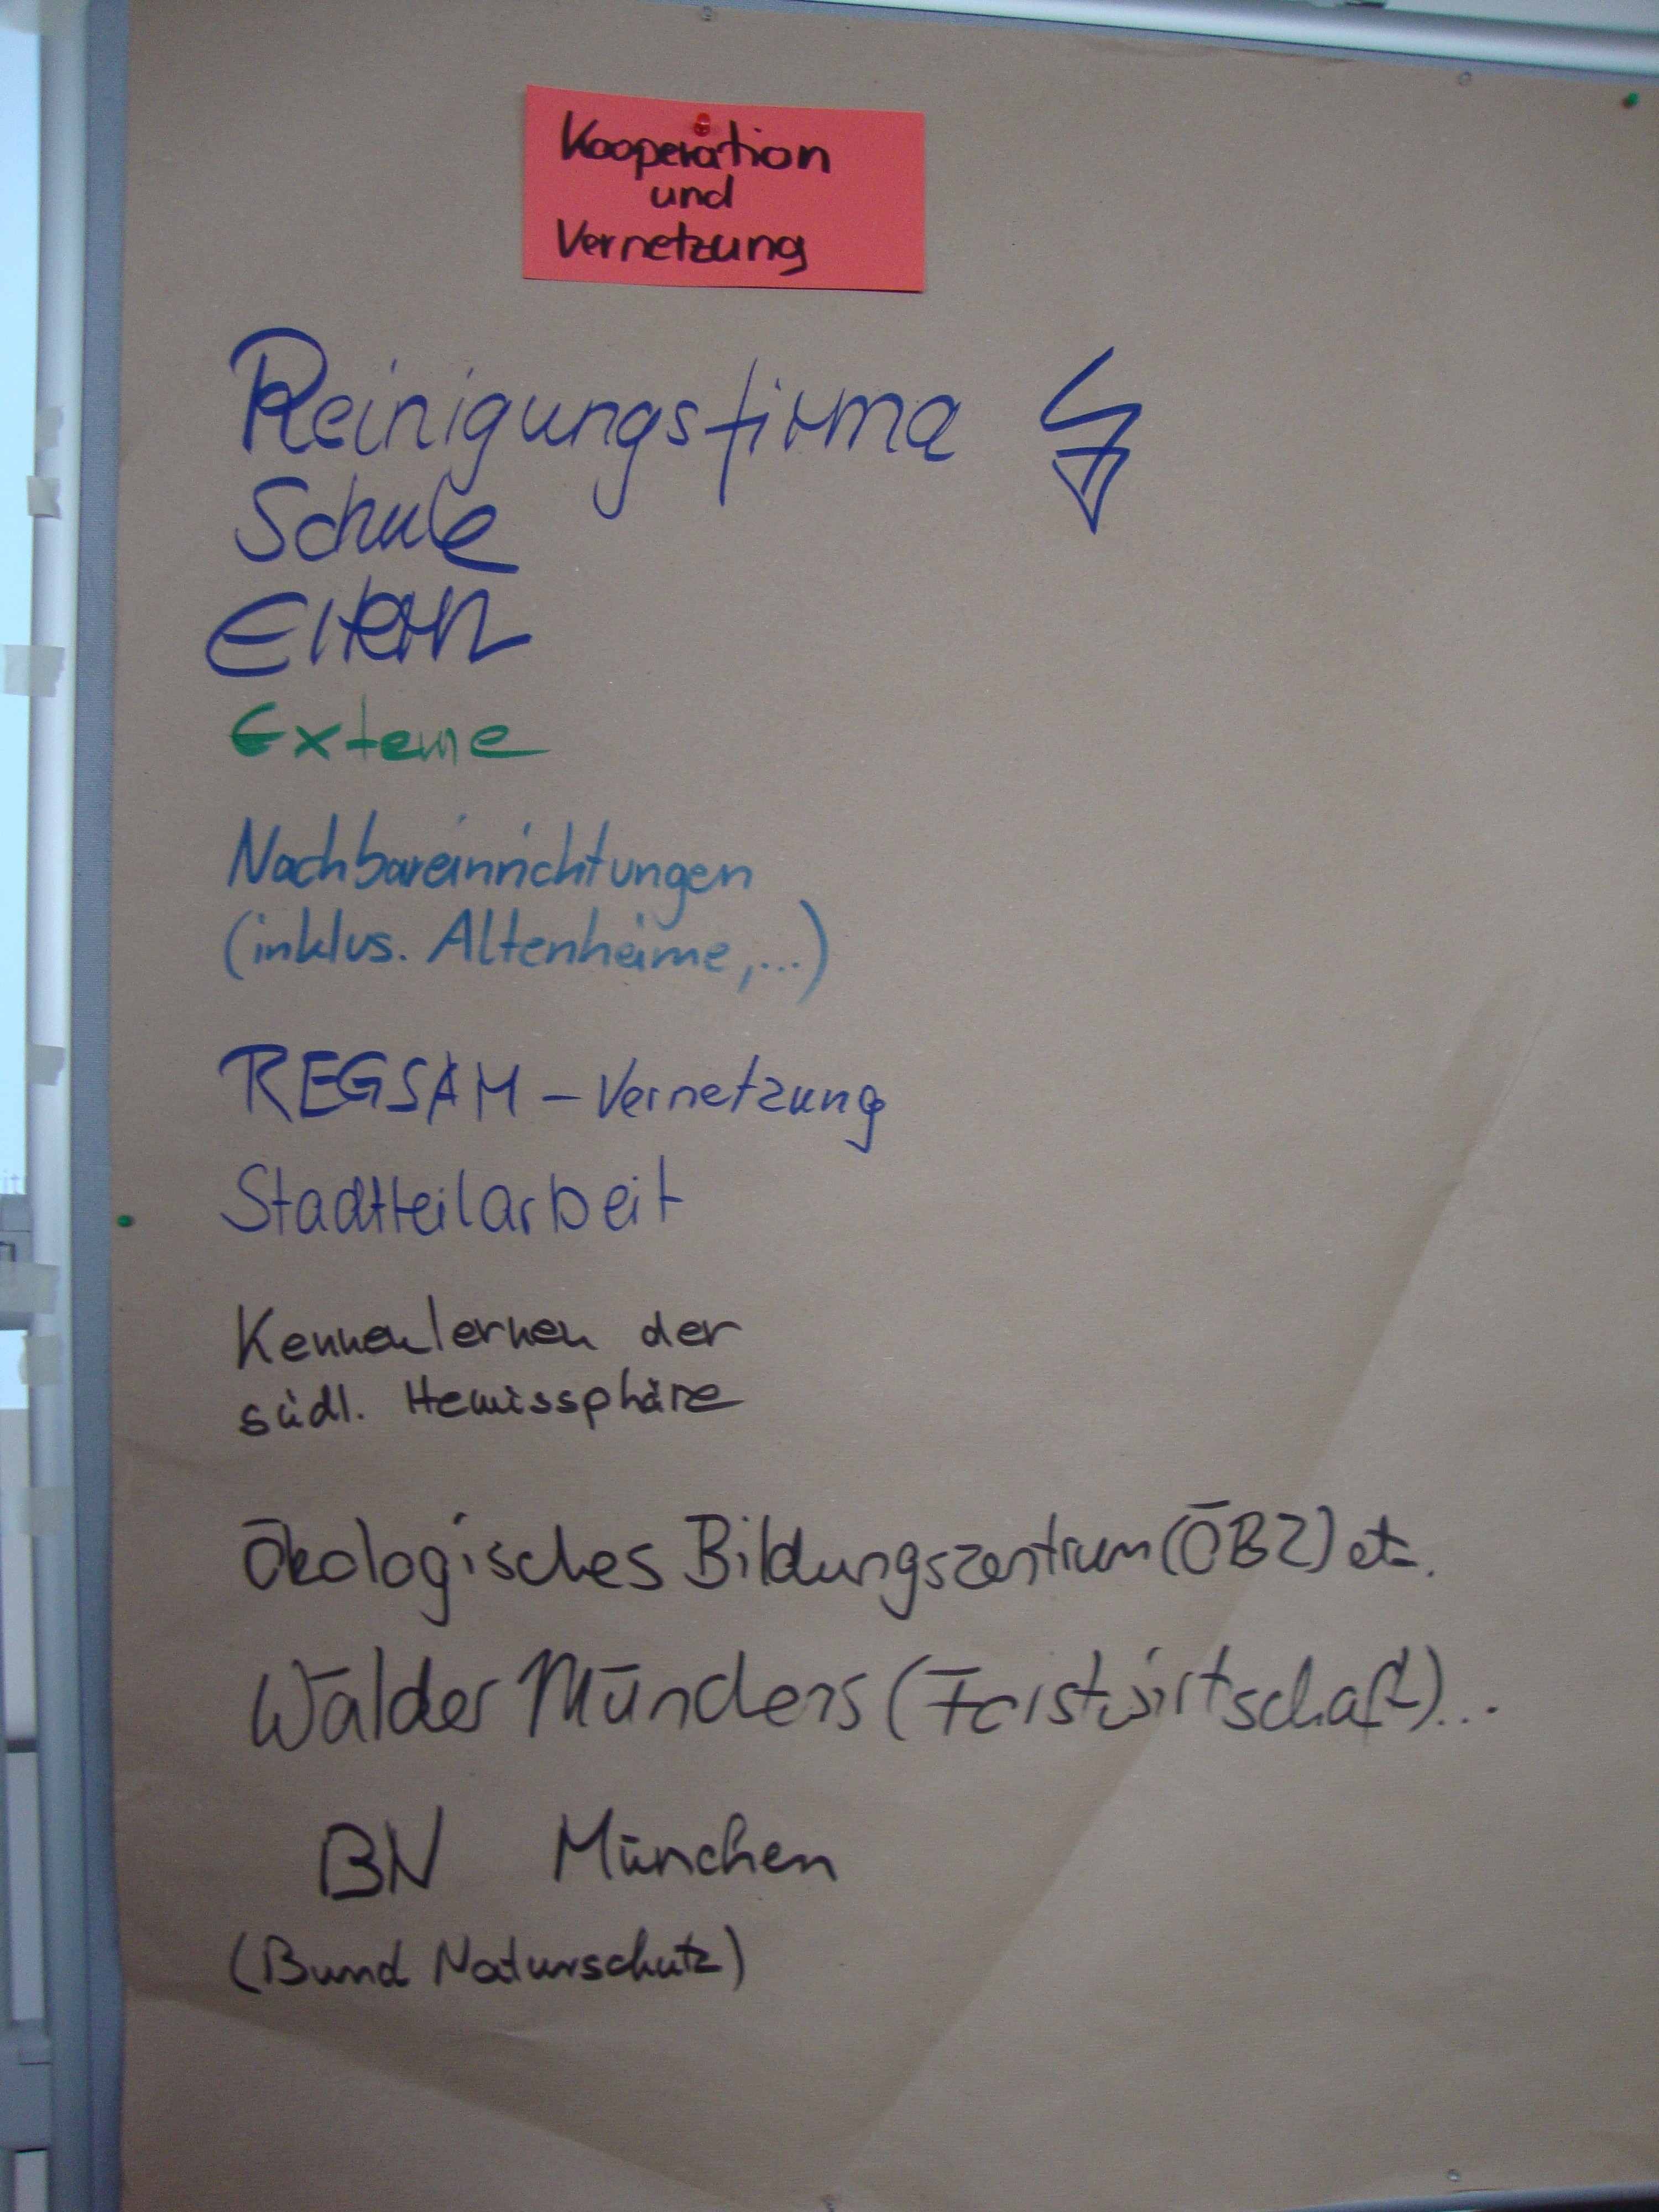 Kooperation
und
Vernetzung
Reinigungsfirma
Schule
Eltern
Externe
Nachbareinrichtungen
(inklus. Altenheime,...)
REGSAM - Vernetzung
Stadtteilarbeit
Kennenlernen der
südl. Hemissphäre
Ökologisches Bildungszentrum (ÖBZ) etc.
Wälder Münchens (Forstwirtschaft)...
BN München
(Bund Naturschutz)